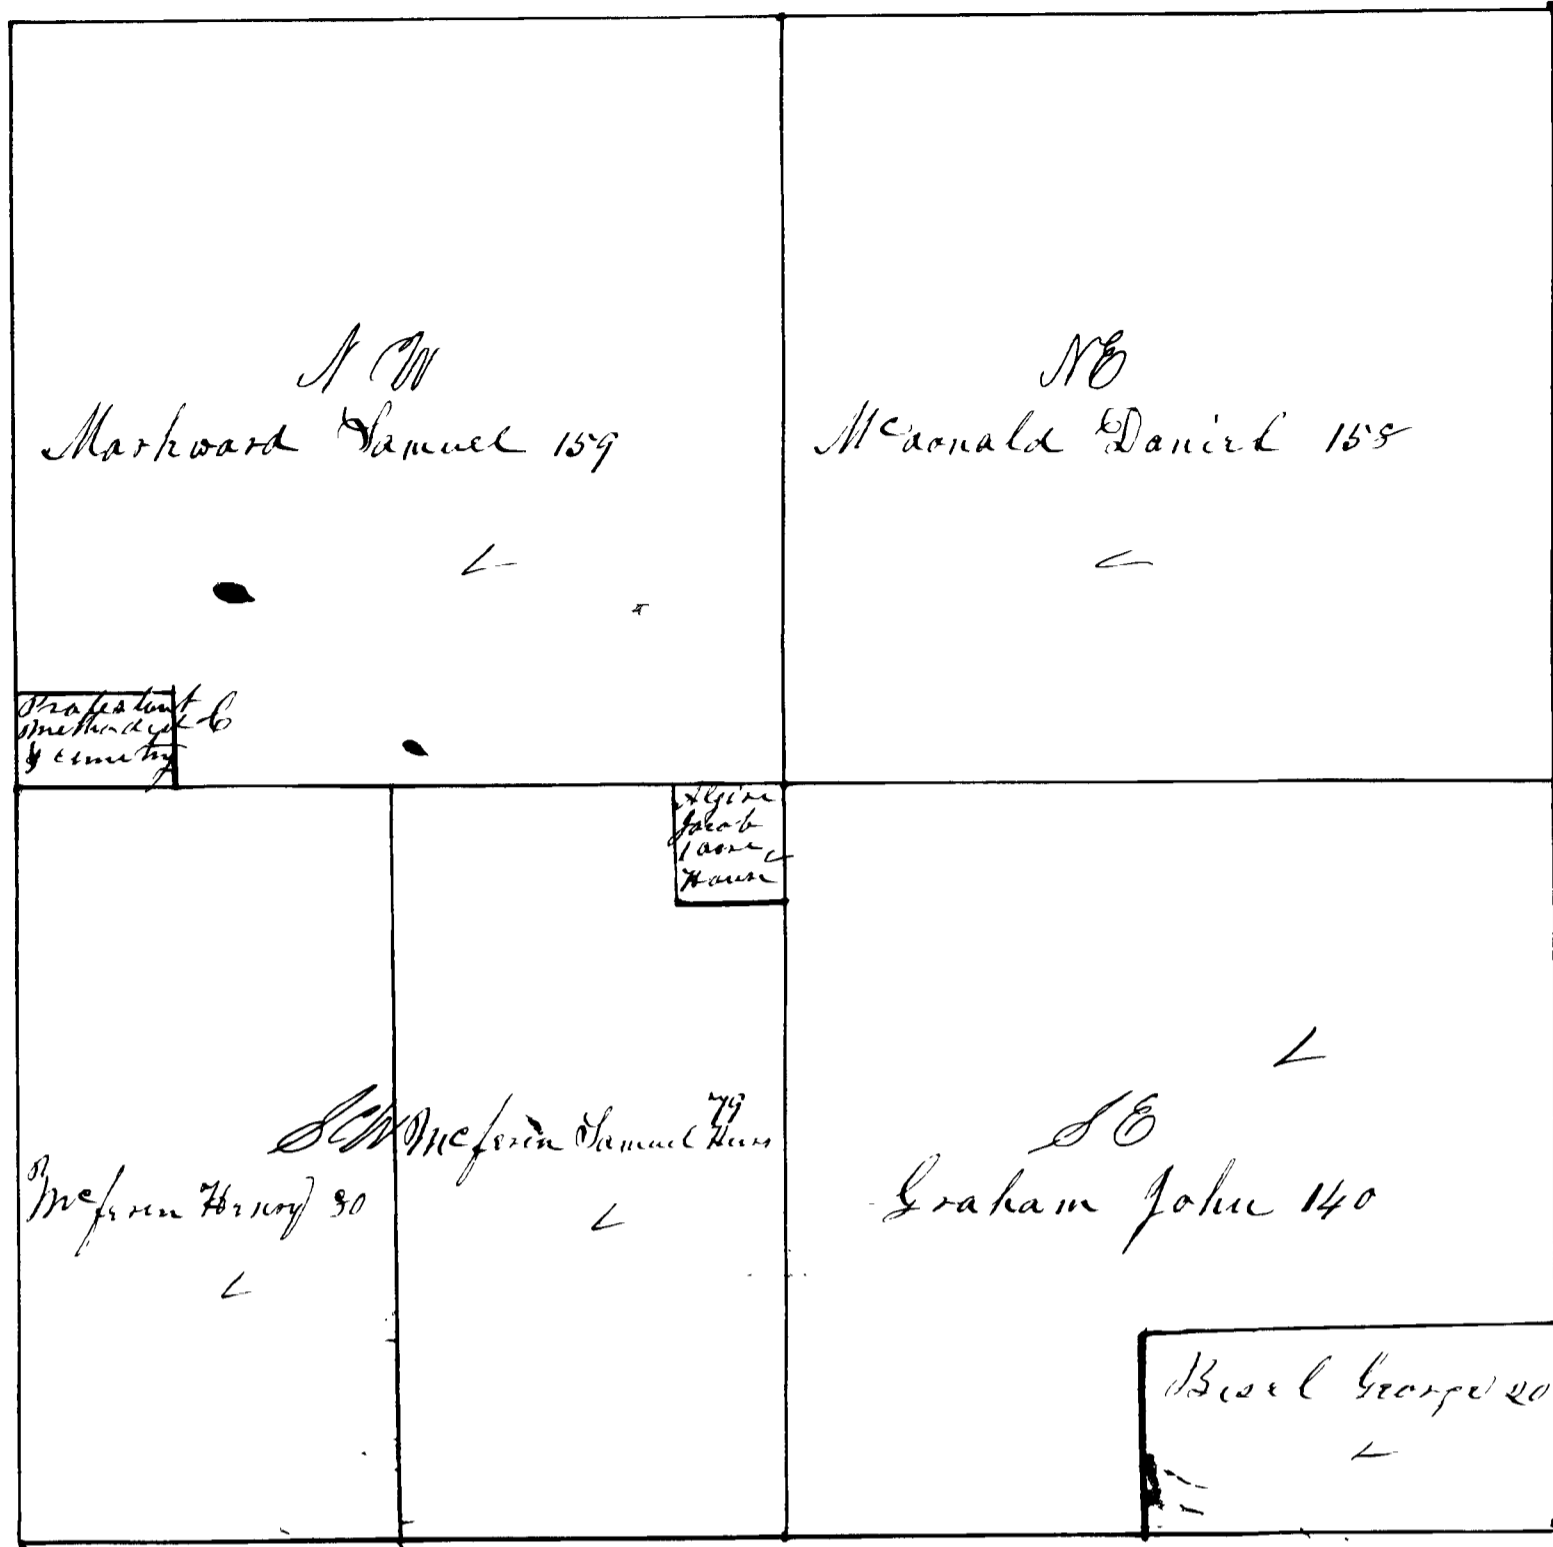 N W
Markward Samuel 159
N E
McDonald Daniel 158
Protestant
Methodist C
& cemetry
Algire
Jacob
1 acre
House
S W
McFerin Samuel Heirs
79
McFerin Henry 80
S E
Graham John 140
Besel George 20